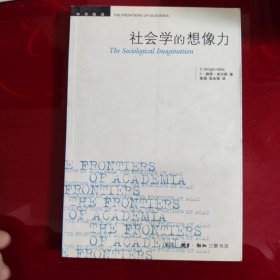 学术前沿 THE FRONTIERS OF ACADEMIA
社会学的想像力
The Sociological Imagination
C. Wright Mills
C·赖特·米尔斯 著
陈强 张永强 译
E FRONTIERS
OF
ACADEMIA
THE FRONTIERS
OF ACADEMIA
生活·读书·新知 三联书店